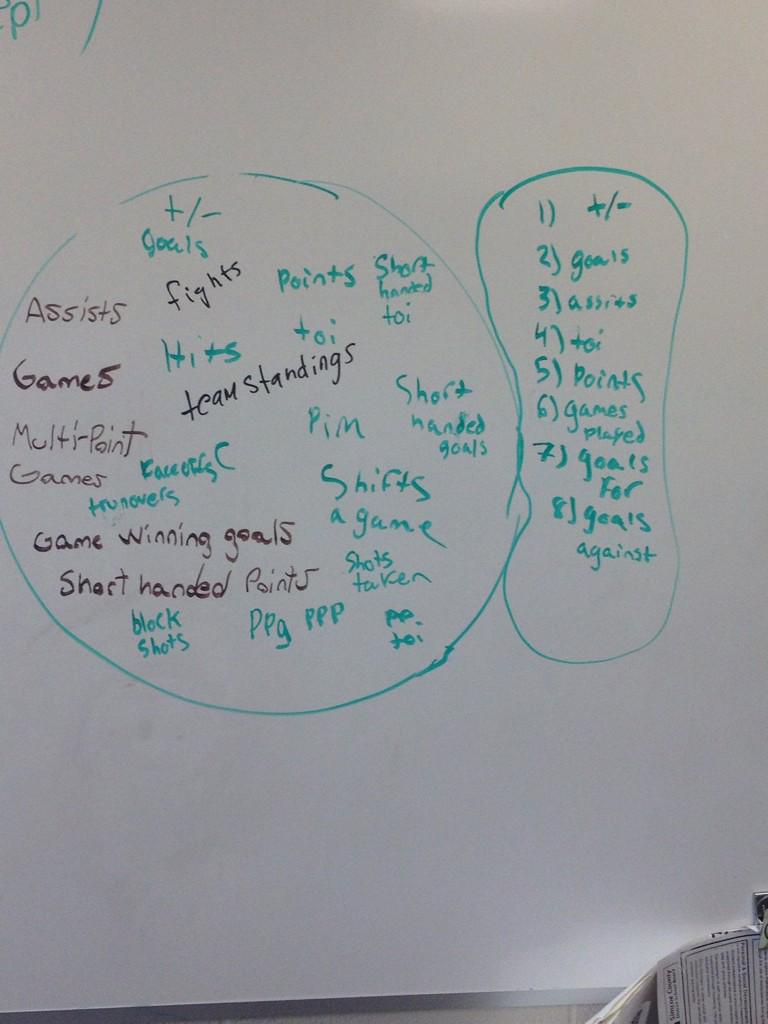 +/-
goals
fights
Points
Short
handed
toi
Assists
Hits
toi
Games
team standings
Multi-Point
Games
Pim
Short
handed
goals
trunovers
Shifts
a game
Game Winning goals
Short handed Points
Shots
taken
block
shots
PPg PPP
PP.
toi
1) +/-
2) goals
3) assits
4) toi
5) Points
6) games
played
7) goals
For
8) goals
against
Simcoe County